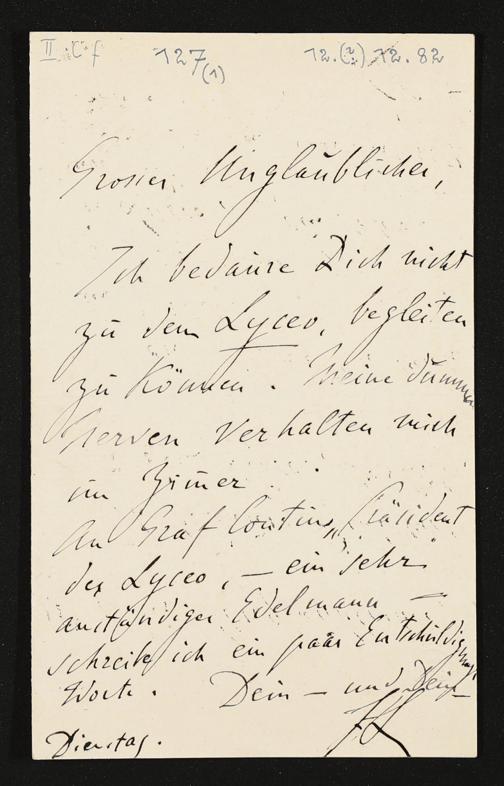 II. C f 127 (1) 12.(?) 12. 82
Grosser Unglaublicher,
Ich bedaure Dich nicht
zu dem Lyceo, begleiten
zu können. Meine dumme
Nerven verhalten mich
im Zimer
An Graf Contin, Präsident
des Lyceo, — ein sehr
anständiger Edelmann —
schreib ich ein paar Entschuldigungs
Worte. Dein — und Dein
Dienstag.